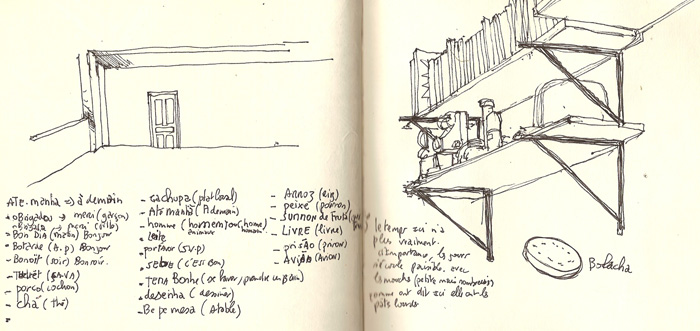 Ate-manha => à demain
- obrigadou -> merci (garçon)
- obrigada -> merci (fille)
- Bon Dia (matin) Bonjour
- Botarde (A.p) Bonjour
- Bonoit (soir) Bonsoir.
- (ça.va)
- porco (cochon)
- chá (thé)
- cachupa (plat local)
- Ate manhà (A demain)
- homme (homem
- Leite
- porfavor (S.V.P)
- (c'est Bon)
- Tema Bonhe (se laver, prendre un Bain)
- desenha (dessiner)
- Be pe mesa (A table)
- Arroz (riz)
- peixe (poisson)
- de Fruta
- Livre (livre)
- prisão (prison)
- Avião (Avion)
le temps ici n'a
plus vraiment
d'importance, le jour
paisible, avec
les mouches (petite mais nombreuses)
comme ont dit ici elles ont les
Bolacha